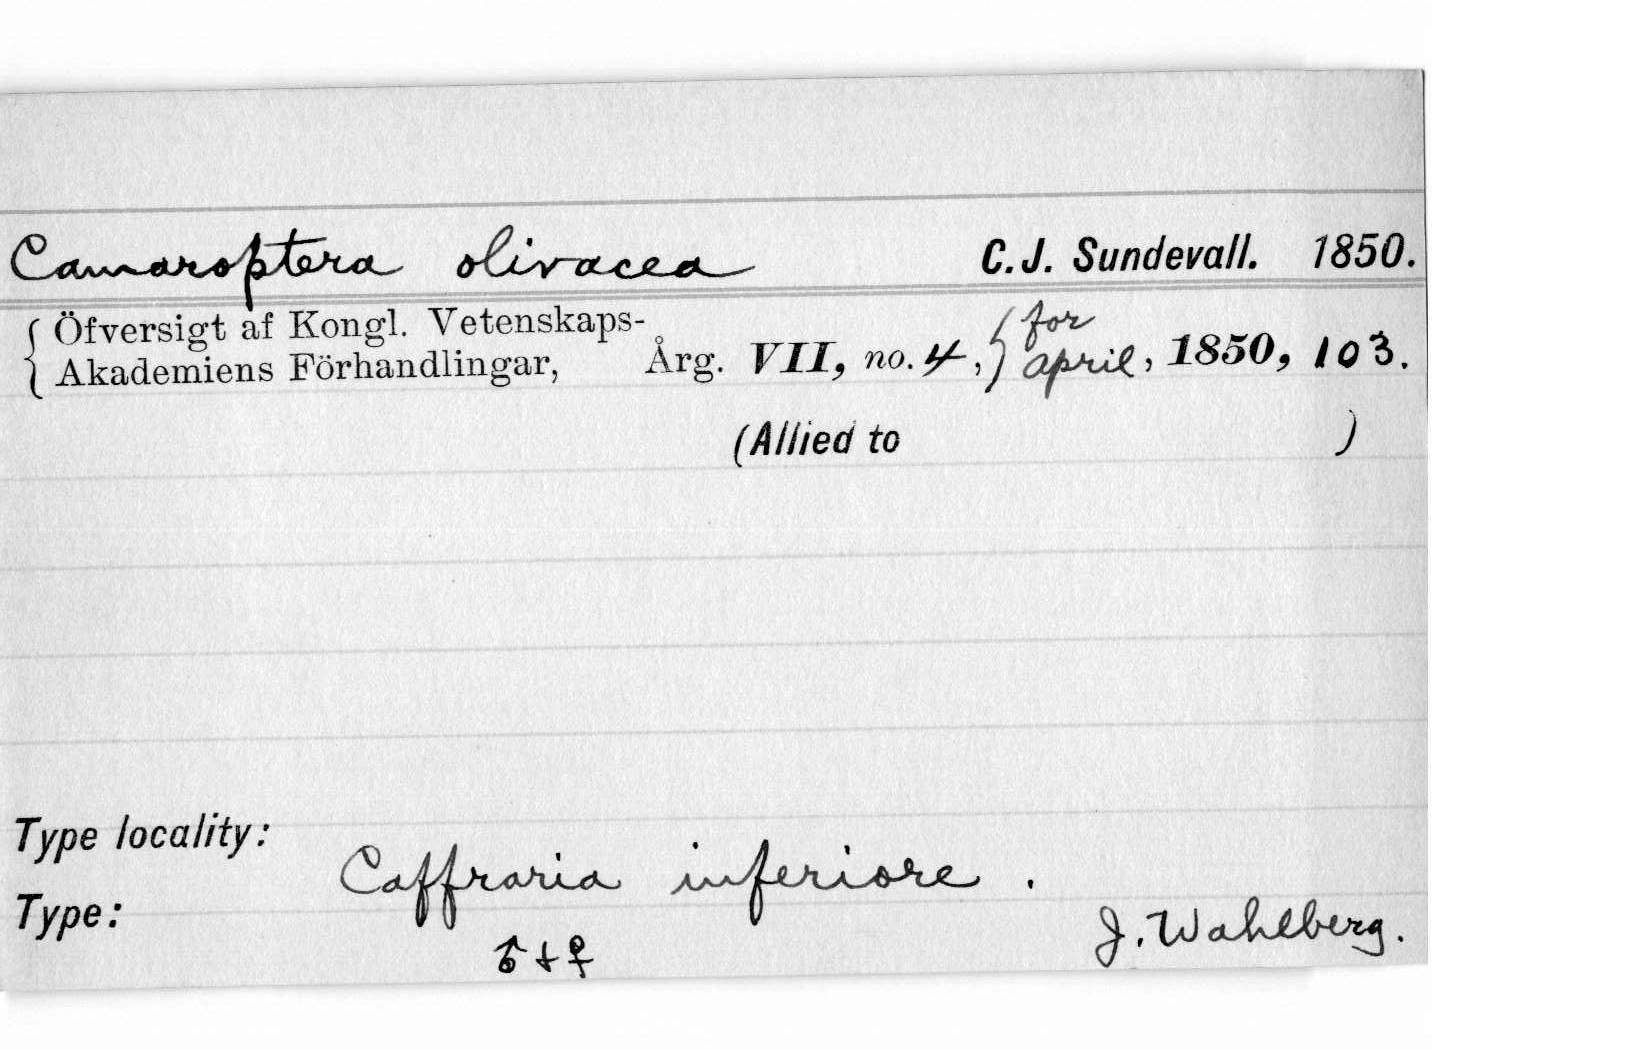 Camaroptera olivacea C.J. Sundevall. 1850.
{ Öfversigt af Kongl. Vetenskaps-
Akademiens Förhandlingar, Årg. VII, no. 4, } for april, 1850, 103.
(Allied to )
Type locality:
Caffraria inferiore.
Type:
♂ + ♀ J. Wahlberg.